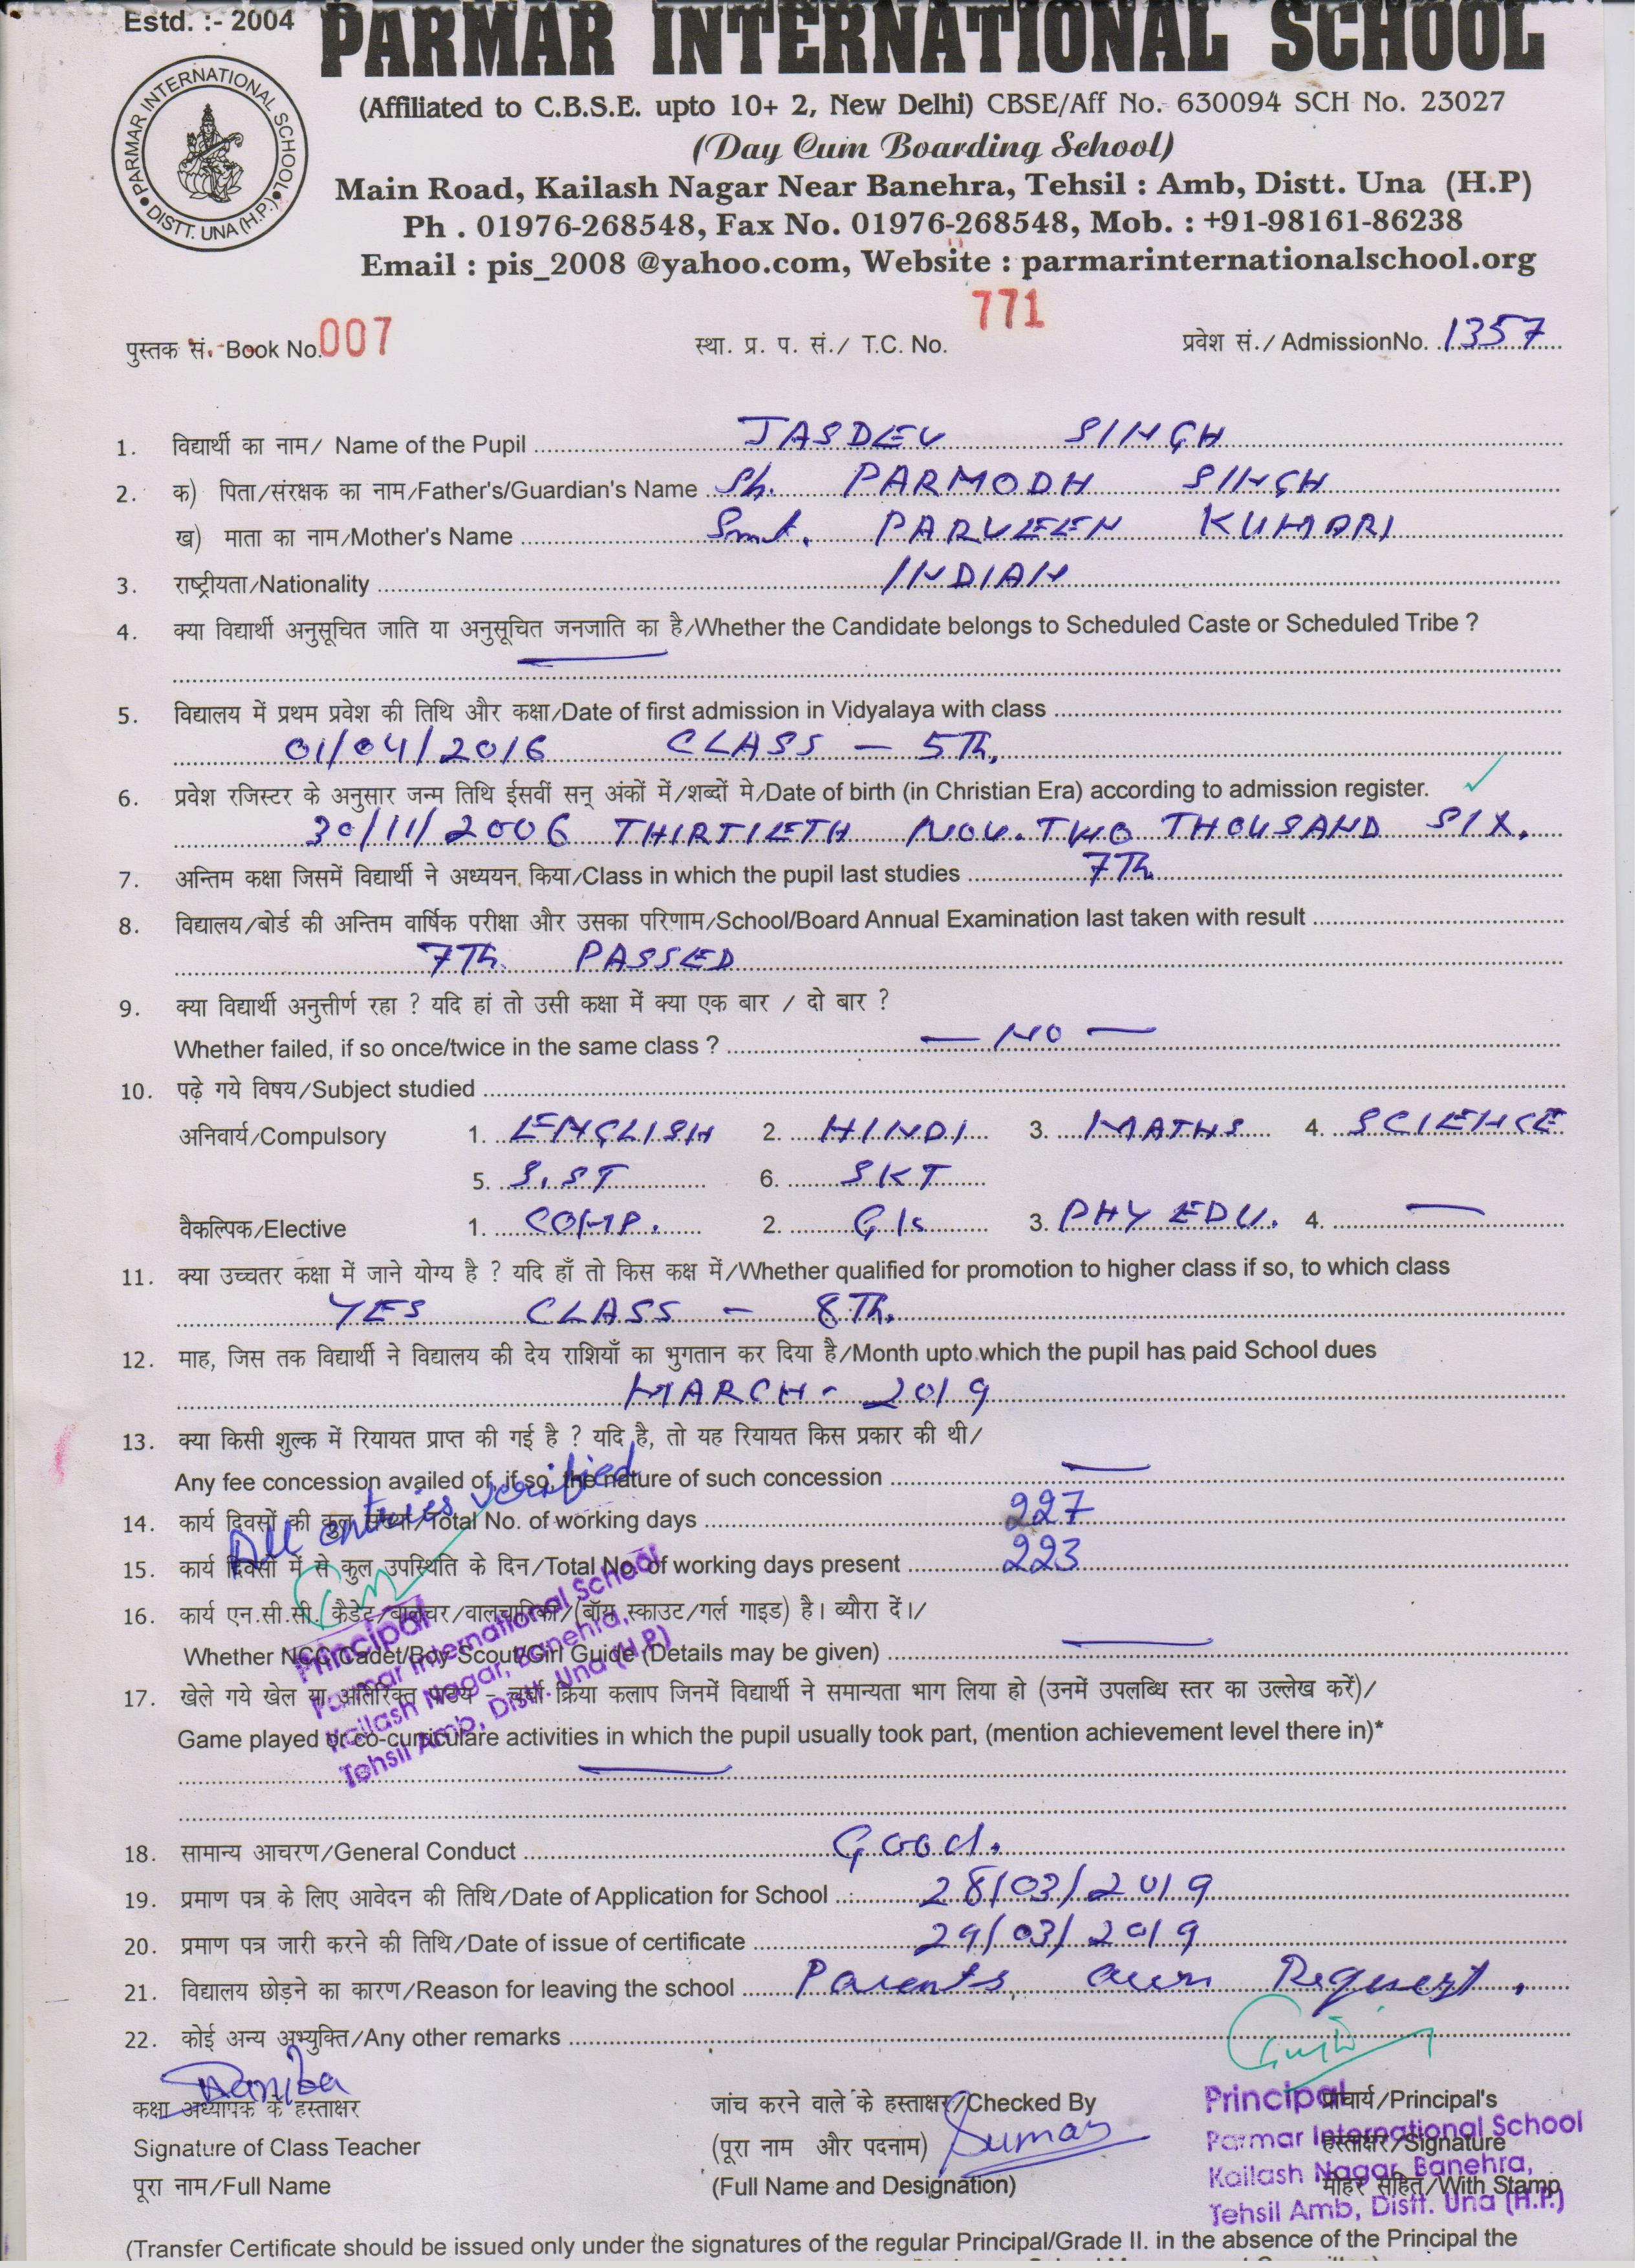 Estd. :- 2004 PARMAR INTERNATIONAL SCHOOL
PARMAR INTERNATIONAL SCHOOL DISTT. UNA (H.P.)
(Affiliated to C.B.S.E. upto 10+ 2, New Delhi) CBSE/Aff No.- 630094 SCH No. 23027
(Day Cum Boarding School)
Main Road, Kailash Nagar Near Banehra, Tehsil : Amb, Distt. Una (H.P)
Ph . 01976-268548, Fax No. 01976-268548, Mob. : +91-98161-86238
Email : pis_2008 @yahoo.com, Website : parmarinternationalschool.org
पुस्तक सं. Book No. 007 स्था. प्र. प. सं./ T.C. No. 771 प्रवेश सं./ AdmissionNo. 1357
1. विद्यार्थी का नाम/ Name of the Pupil JASDEV SINGH
2. क) पिता/संरक्षक का नाम/Father's/Guardian's Name Sh. PARMODH SINGH
ख) माता का नाम/Mother's Name Smt. PARVEEN KUMARI
3. राष्ट्रीयता/Nationality INDIAN
4. क्या विद्यार्थी अनुसूचित जाति या अनुसूचित जनजाति का है/Whether the Candidate belongs to Scheduled Caste or Scheduled Tribe ?
5. विद्यालय में प्रथम प्रवेश की तिथि और कक्षा/Date of first admission in Vidyalaya with class
01/04/2016 CLASS — 5Th.
6. प्रवेश रजिस्टर के अनुसार जन्म तिथि ईसवीं सन् अंकों में/शब्दों मे/Date of birth (in Christian Era) according to admission register.
30/11/2006 THIRTIETH NOV. TWO THOUSAND SIX.
7. अन्तिम कक्षा जिसमें विद्यार्थी ने अध्ययन किया/Class in which the pupil last studies 7Th
8. विद्यालय/बोर्ड की अन्तिम वार्षिक परीक्षा और उसका परिणाम/School/Board Annual Examination last taken with result
7Th. PASSED
9. क्या विद्यार्थी अनुत्तीर्ण रहा ? यदि हां तो उसी कक्षा में क्या एक बार / दो बार ?
Whether failed, if so once/twice in the same class ? — NO —
10. पढ़े गये विषय/Subject studied
अनिवार्य/Compulsory 1. ENGLISH 2. HINDI 3. MATHS 4. SCIENCE
5. S.ST 6. SKT
वैकल्पिक/Elective 1. COMP. 2. GK 3. PHY EDU. 4. —
11. क्या उच्चतर कक्षा में जाने योग्य है ? यदि हाँ तो किस कक्ष में/Whether qualified for promotion to higher class if so, to which class
YES CLASS - 8Th.
12. माह, जिस तक विद्यार्थी ने विद्यालय की देय राशियाँ का भुगतान कर दिया है/Month upto which the pupil has paid School dues
MARCH - 2019
13. क्या किसी शुल्क में रियायत प्राप्त की गई है ? यदि है, तो यह रियायत किस प्रकार की थी/
Any fee concession availed of, if so, the nature of such concession —
All entries verified
14. कार्य दिवसों की कुल संख्या/Total No. of working days 227
15. कार्य दिवसों में से कुल उपस्थिति के दिन/Total No. of working days present 223
16. कार्य एन.सी.सी. कैडेट/बालचर/वालचारिका/(बॉय स्काउट/गर्ल गाइड) है। ब्यौरा दें।/
Whether NCC Cadet/Boy Scout/Girl Guide (Details may be given) —
Principal
Parmar International School
Kailash Nagar, Banehra,
Tehsil Amb, Distt. Una (H.P.)
17. खेले गये खेल या अतिरिक्त पाठ्य - चर्या क्रिया कलाप जिनमें विद्यार्थी ने समान्यता भाग लिया हो (उनमें उपलब्धि स्तर का उल्लेख करें)/
Game played or co-curriculare activities in which the pupil usually took part, (mention achievement level there in)*
18. सामान्य आचरण/General Conduct Good.
19. प्रमाण पत्र के लिए आवेदन की तिथि/Date of Application for School 28/03/2019
20. प्रमाण पत्र जारी करने की तिथि/Date of issue of certificate 29/03/2019
21. विद्यालय छोड़ने का कारण/Reason for leaving the school Parents own Request.
22. कोई अन्य अभ्युक्ति/Any other remarks
कक्षा अध्यापक के हस्ताक्षर जांच करने वाले के हस्ताक्षर/Checked By प्राचार्य/Principal's
Signature of Class Teacher (पूरा नाम और पदनाम) Suman हस्ताक्षर/Signature
पूरा नाम/Full Name (Full Name and Designation) मोहर सहित/With Stamp
Principal
Parmar International School
Kailash Nagar, Banehra,
Tehsil Amb, Distt. Una (H.P.)
(Transfer Certificate should be issued only under the signatures of the regular Principal/Grade II. in the absence of the Principal the